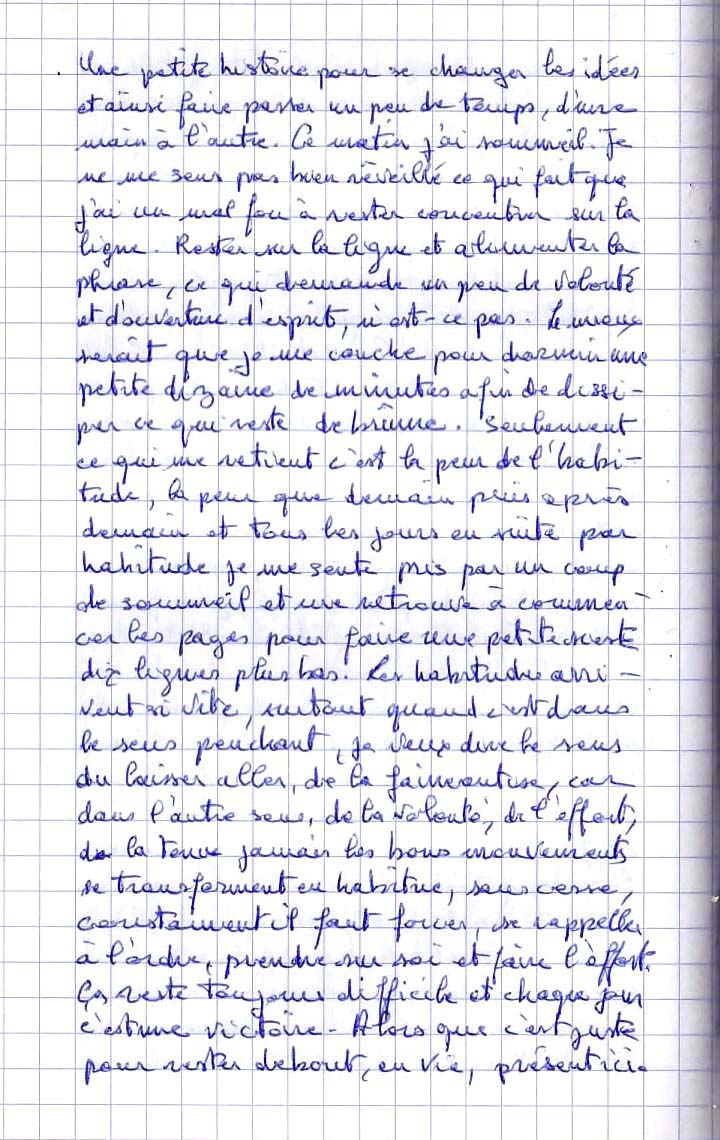 Une petite histoire pour se changer les idées
et ainsi faire passer un peu de temps, d'une
main à l'autre. Ce matin j'ai sommeil. Je
ne me sens pas bien réveillé ce qui fait que
j'ai un mal fou à rester concentrer sur la
ligne. Rester sur la ligne et alimenter la
phrase, ce qui demande un peu de volonté
et d'ouverture d'esprit, n'est-ce pas. Le mieux
serait que je me couche pour dormir une
petite dizaine de minutes afin de dissi-
per ce qui reste de brume. Seulement
ce qui me retient c'est la peur de l'habi-
tude, la peur que demain puis après
demain et tous les jours en suite par
habitude je me sente pris par un coup
de sommeil et me retrouve à commen-
cer les pages pour faire une petite sieste
dix lignes plus bas. Les habitudes arri-
vent si vite, surtout quand c'est dans
le sens penchant, je veux dire le sens
du laisser aller, de la faineantise, car
dans l'autre sens, de la volonté, de l'effort,
de la tenue jamais les bons mouvements
se transforment en habitue, sans cesse,
constament il faut forcer, se rappeller
à l'ordre, prendre sur soi et faire l'effort.
Ça reste toujours difficile et chaque jour
c'est une victoire - Alors que c'est juste
pour rester debout, en vie, présent ici.